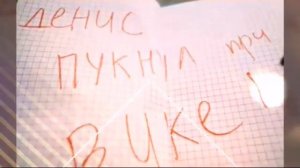 ДЕНИС
ПУКНІЛ при
Вике